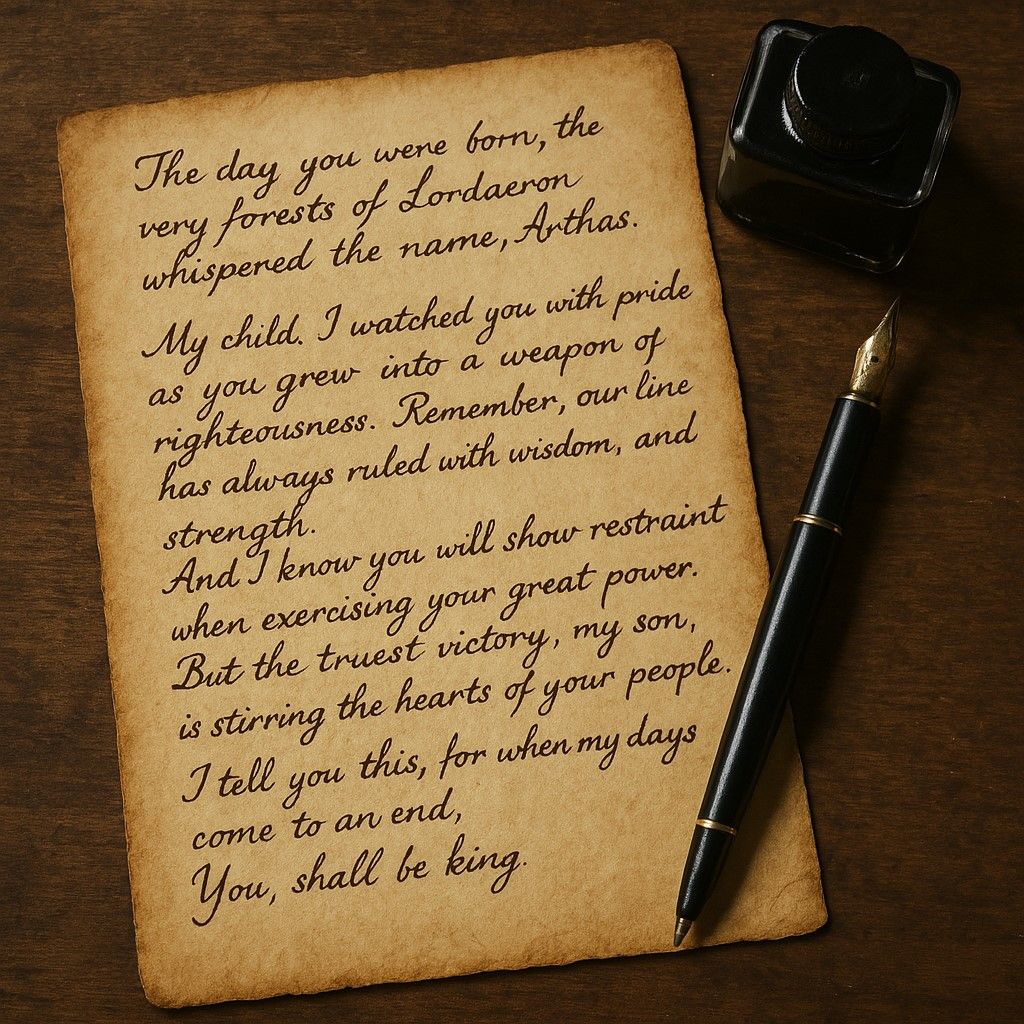 The day you were born, the
very forests of Lordaeron
whispered the name, Arthas.
My child. I watched you with pride
as you grew into a weapon of
righteousness. Remember, our line
has always ruled with wisdom, and
strength.
And I know you will show restraint
when exercising your great power.
But the truest victory, my son,
is stirring the hearts of your people.
I tell you this, for when my days
come to an end,
You, shall be king.